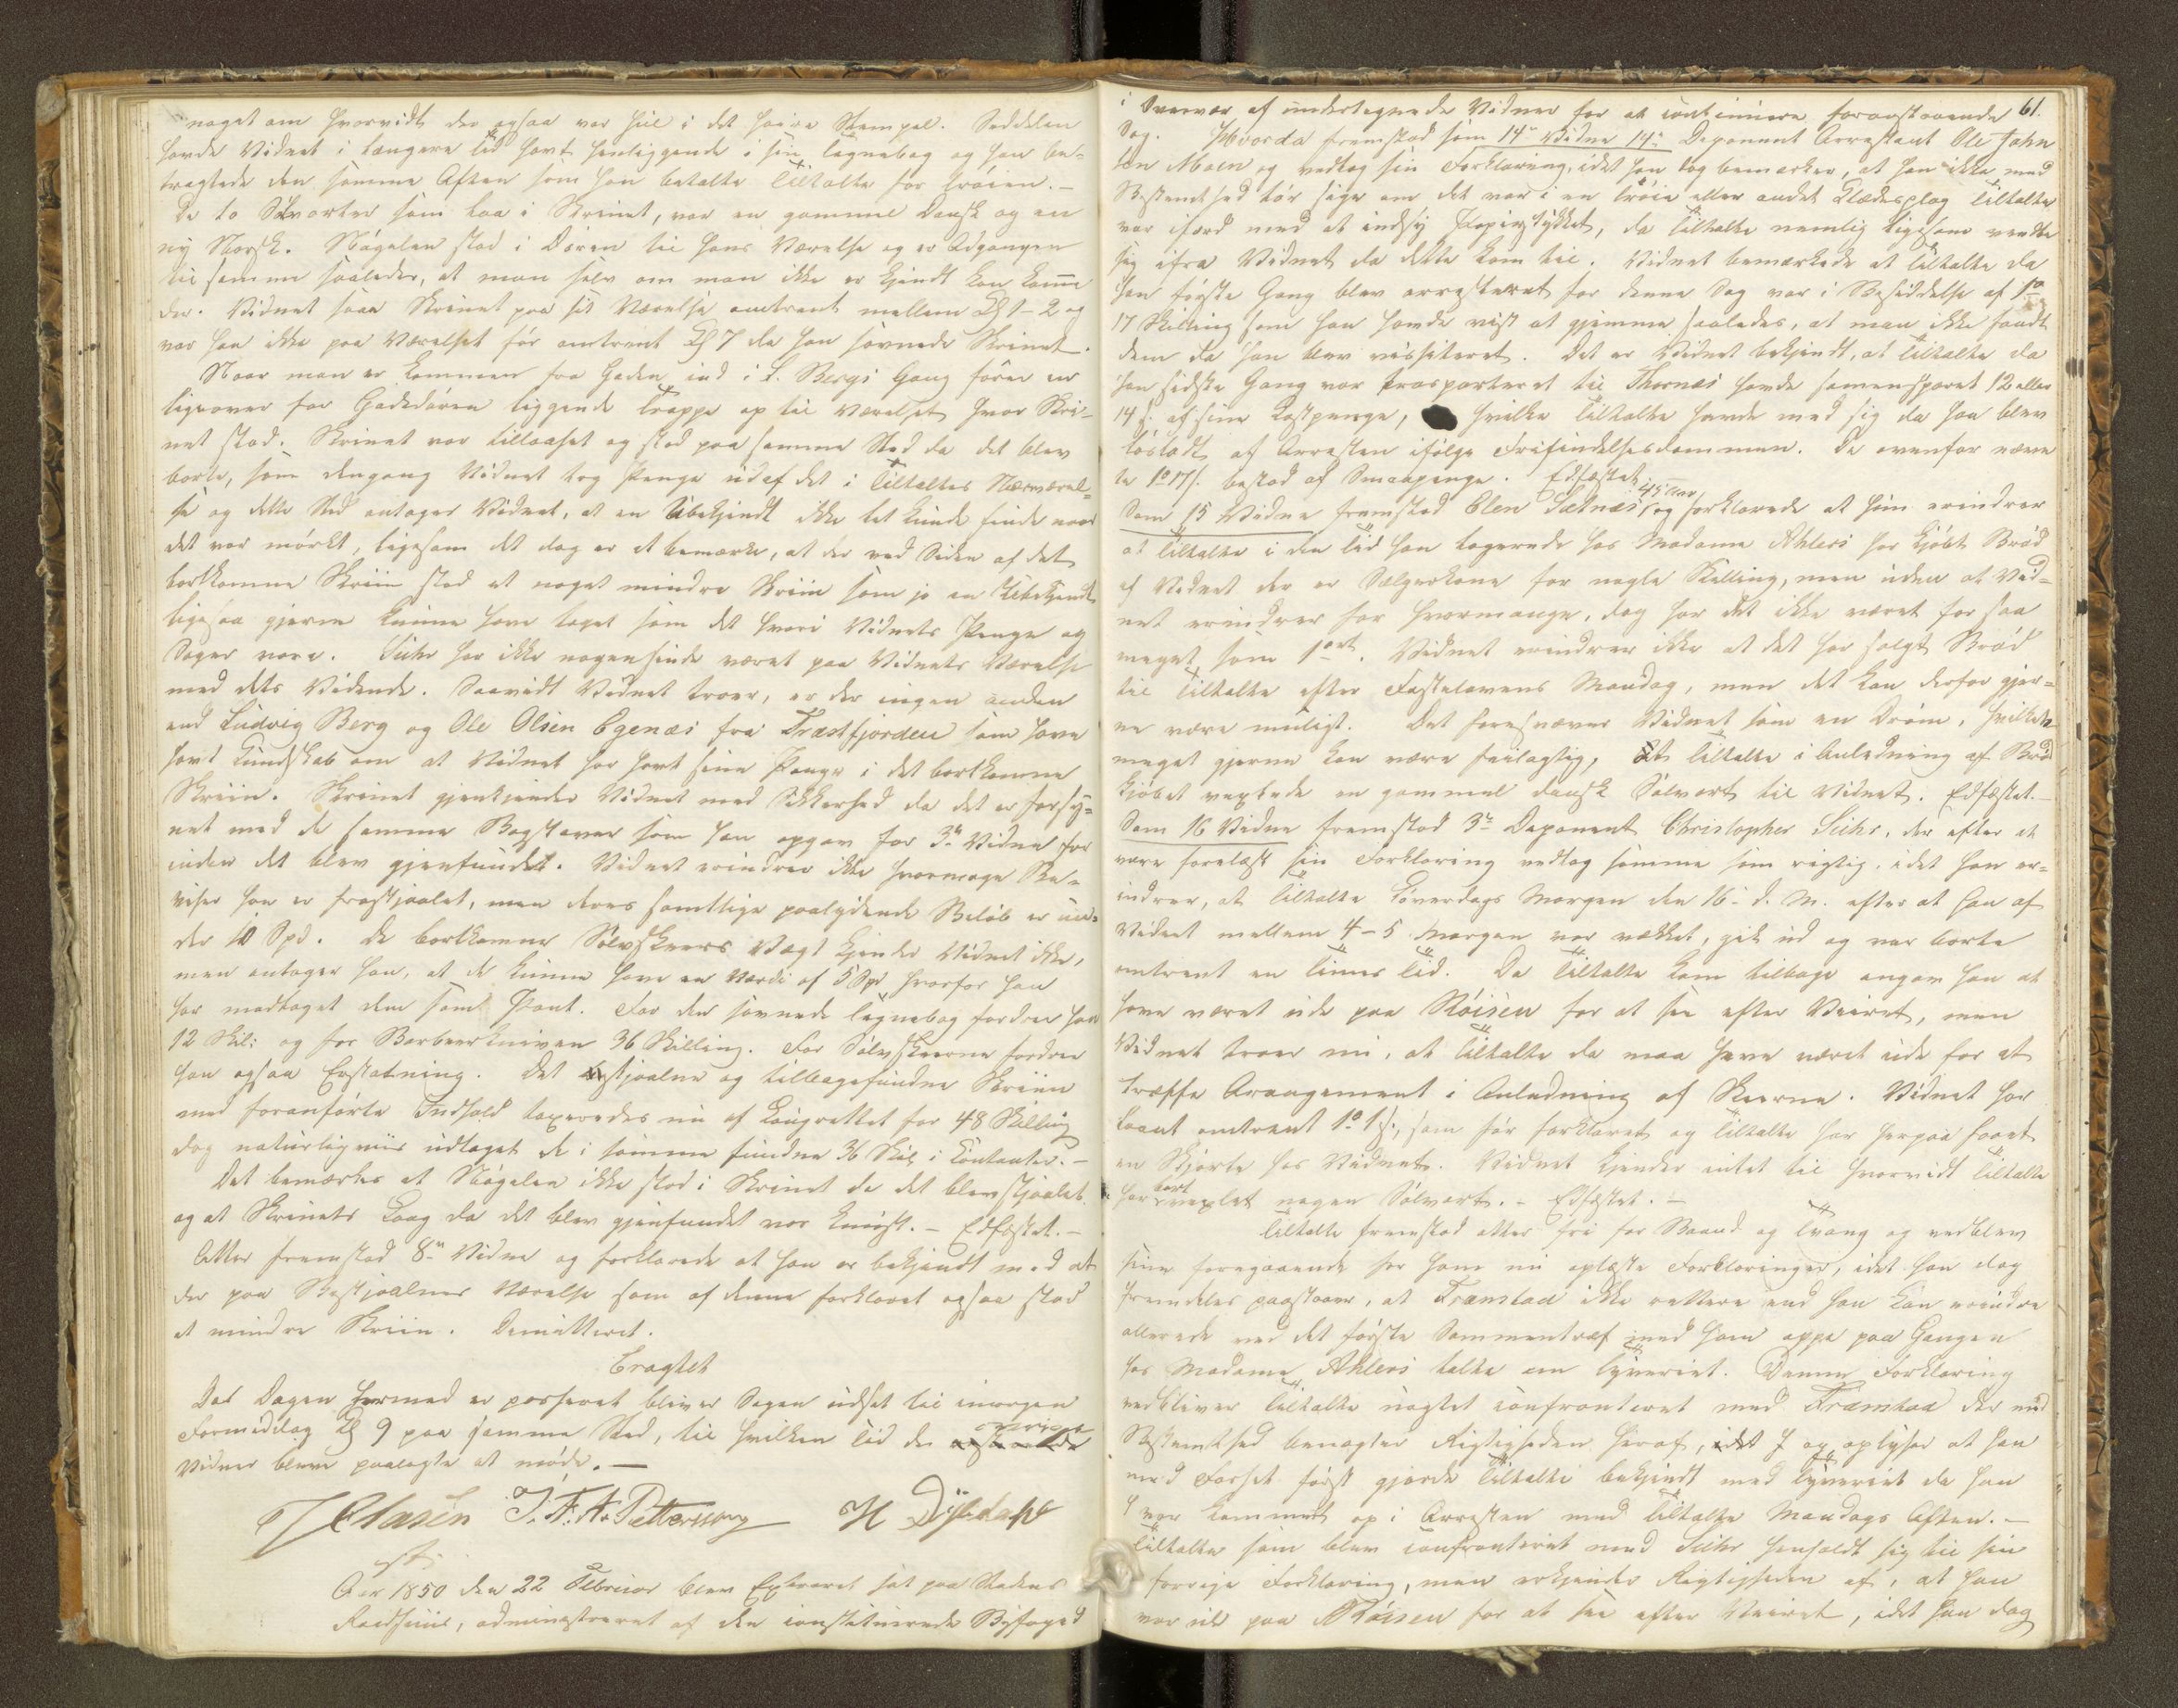 noget om hvorvidt der ogsaa var hul i det høire Stempel. Seddelen
havde Vidnet i længere Tid havt henliggende i sin Tegnebog og han be-
tragtede den samme Aften som han betalte Tiltalte for Trøien. -
De to Sølvorter som laa i Skrinet, var en gammel Dansk og en
ny Norsk. Nøgelen stod i Døren til hans Værelse og er Adgangen
til samme saaledes, at man selv om man ikke er kjendt kan komme
der. Vidnet saae Skrinet paa sit Værelse omtrent mellem Kl 1-2 og
var han ikke paa Værelset før omtrent Kl 7 da han savnede Skrinet.
Naar man er kommen fra Gaden ind i L. Bergs Gang fører en
ligeover for Gadedøren liggende Trappe op til Værelset hvor Skri-
net stod. Skrinet var tillaaset og stod paa samme Sted da det blev
borte, som dengang Vidnet tog Penge ud af det i Tiltaltes Nærværel-
se og dette Sted antager Vidnet, at en Ubekjendt ikke let kunde finde naar
det var mørkt, ligesom det dog er at bemærke, at der ved Siden af det
bortkomne Skriin stod et noget mindre Skriin som jo en Ubekjendt
ligesaa gjerne kunne have taget som det hvori Vidnets Penge og
Sager vare. Suhr har ikke nogensinde været paa Vidnets Værelse
med dets Vidende. Saavidt Vidnet troer, er der ingen anden
end Ludvig Berg og Ole Olsen Egenæs fra Træstfjorden som have
havt Kundskab om at Vidnet har havt sine Penge i det bortkomne
Skriin. Skrinet gjenkjender Vidnet med Sikkerhed da det er forsy-
net med de samme Bogstaver som han opgav for 3die Vidne før
inden det blev gjenfundet. Vidnet erindrer ikke hvormange Be-
viser han er frastjaalet, men deres samtlige paalydende Beløb er un-
der 10 Spd. De bortkomne Sølvskeers Vægt kjender Vidnet ikke,
men antager han, at de kunne have en Værdi af 5 Spd hvorfor han
har modtaget dem som Pant. For den savnede Tegnebog fordrer han
12 Skil: og for Barbeerkniven 36 Skilling. For Sølvskeerne fordrer
han ogsaa Erstatning. Det stjaalne og tilbagefundne Skriin
med foranførte Indhold taxeredes nu af Laugrettet for 48 Skilling
dog naturligviis udtaget de i samme fundne 36 Skil i Contanter. -
Det bemærkes at Nøgelen ikke stod i Skrinet da det blev stjaalet
og at Skrinets Laag da det blev gjenfundet var knust. - Edfæstet. -
Atter fremstod 8de Vidne og forklarede at han er bekjendt med at
der paa Bestjaalnes Værelse som af denne forklaret ogsaa stod
et mindre Skriin. Demitteret.
Eragtet
Da Dagen hermed er passeret bliver Sagen udsat til imorgen
Formiddag Kl 9 paa samme Sted, til hvilken Tid de øvrige
Vidner bleve paalagte at møde. -
Clasen J. F. A. Pettersson H Dyhdahl
Aar 1850 den 22 Februar blev Extraret sat paa Stadens
Raadhuus, administreret af den constituerede Byfoged
61.
i Overvær af undertegnede Vidner for at continuere foranstaaende
Sag. Hvorda fremstod som 14de Vidne 14de Deponent Arrestant Ole John
sen Moen og vedtog sin Forklaring, idet han dog bemærker, at han ikke med
Bestemthed tør sige om det var i en Trøie eller andet Klædesplag Tiltalte
var ifærd med at indsy Papirstykket, da Tiltalte nemlig ligesom vendte
sig ifra Vidnet da dette kom til. Vidnet bemærkede at Tiltalte da
han første Gang blev arresteret for denne Sag var i Besiddelse af 1 o
17 Skilling som han havde vist at gjemme saaledes, at man ikke fandt
dem da han blev visiteret. Det er Vidnet bekjendt, at Tiltalte da
han sidste Gang var trasporteret til Thornæs havde sammensparet 12 eller
14 s. af sine Kostpenge, hvilke Tiltalte havde med sig da han blev
løsladt af Arresten ifølge Frifindelsesdommen. De ovenfor nævn
te 1 o 17 s. bestod af Smaapenge. Edfæstet.
Som 15 Vidne fremstod Elen Sætnæs 45 Aar og forklarede at hun erindrer
at Tiltalte i den Tid han logerede hos Madame Ahlers har kjøbt Brød
af Vidnet der er Sælgerkone for nogle Skilling, men uden at Vid-
net erindrer for hvormange, dog har det ikke været for saa
meget som 1 ort. Vidnet erindrer ikke at det har solgt Brød
til Tiltalte efter Fastelavens Mandag, men det kan derfor gjer-
ne være muligt. Det foresvæver Vidnet som en Drøm, hvilket
meget gjerne kan være feilagtig, at Tiltalte i Anledning af Brød
kjøbet vexlede en gammel dansk Sølvort til Vidnet. Edfæstet. -
Som 16 Vidne fremstod 3die Deponent Christopher Suhr, der efter at
være forelæst sin Forklaring vedtog samme som rigtig, idet han er-
indrer, at Tiltalte Løverdags Morgen den 16de d. M. efter at han af
Vidnet mellem 4-5 Morgen var vækket, gik ud og var borte
omtrent en Times Tid. Da Tiltalte kom tilbage angav han at
have været ude paa Røisen for at see efter Veiret, men
Vidnet troer nu, at Tiltalte da maa have været ude for at
træffe Arrangement i Anledning af Skeerne. Vidnet har
laant omtrent 1 o 1 s., som før forklaret og Tiltalte har herpaa faaet
en Skjorte hos Vidnet. Vidnet kjender intet til hvorvidt Tiltalte
har bort vexlet nogen Sølvort. - Edfæstet. -
Tiltalte fremstod atter fri for Baand og Tvang og vedblev
sine foregaaende for ham nu oplæste Forklaringer, idet han dog
fremdeles paastaaer, at Tramstad ikke rettere end han kan erindre
allerede ved det første Sammentræf med ham oppe paa Gangen
hos Madame Ahlers talte om Tyveriet. Denne Forklaring
vedbliver Tiltalte uagtet confronteret med Tramstad der med
Bestemthed benægter Rigtigheden heraf, og oplyser at han
med Forsæt først gjorde Tiltalte bekjendt med Tyveriet da han
var kommet op i Arresten med Tiltalte Mandags Aften. -
Tiltalte som blev confronteret med Suhr henholdt sig til sin
forrige Forklaring, men erkjender Rigtigheden af, at han
var ude paa Røisen for at see efter Veiret, idet han dog